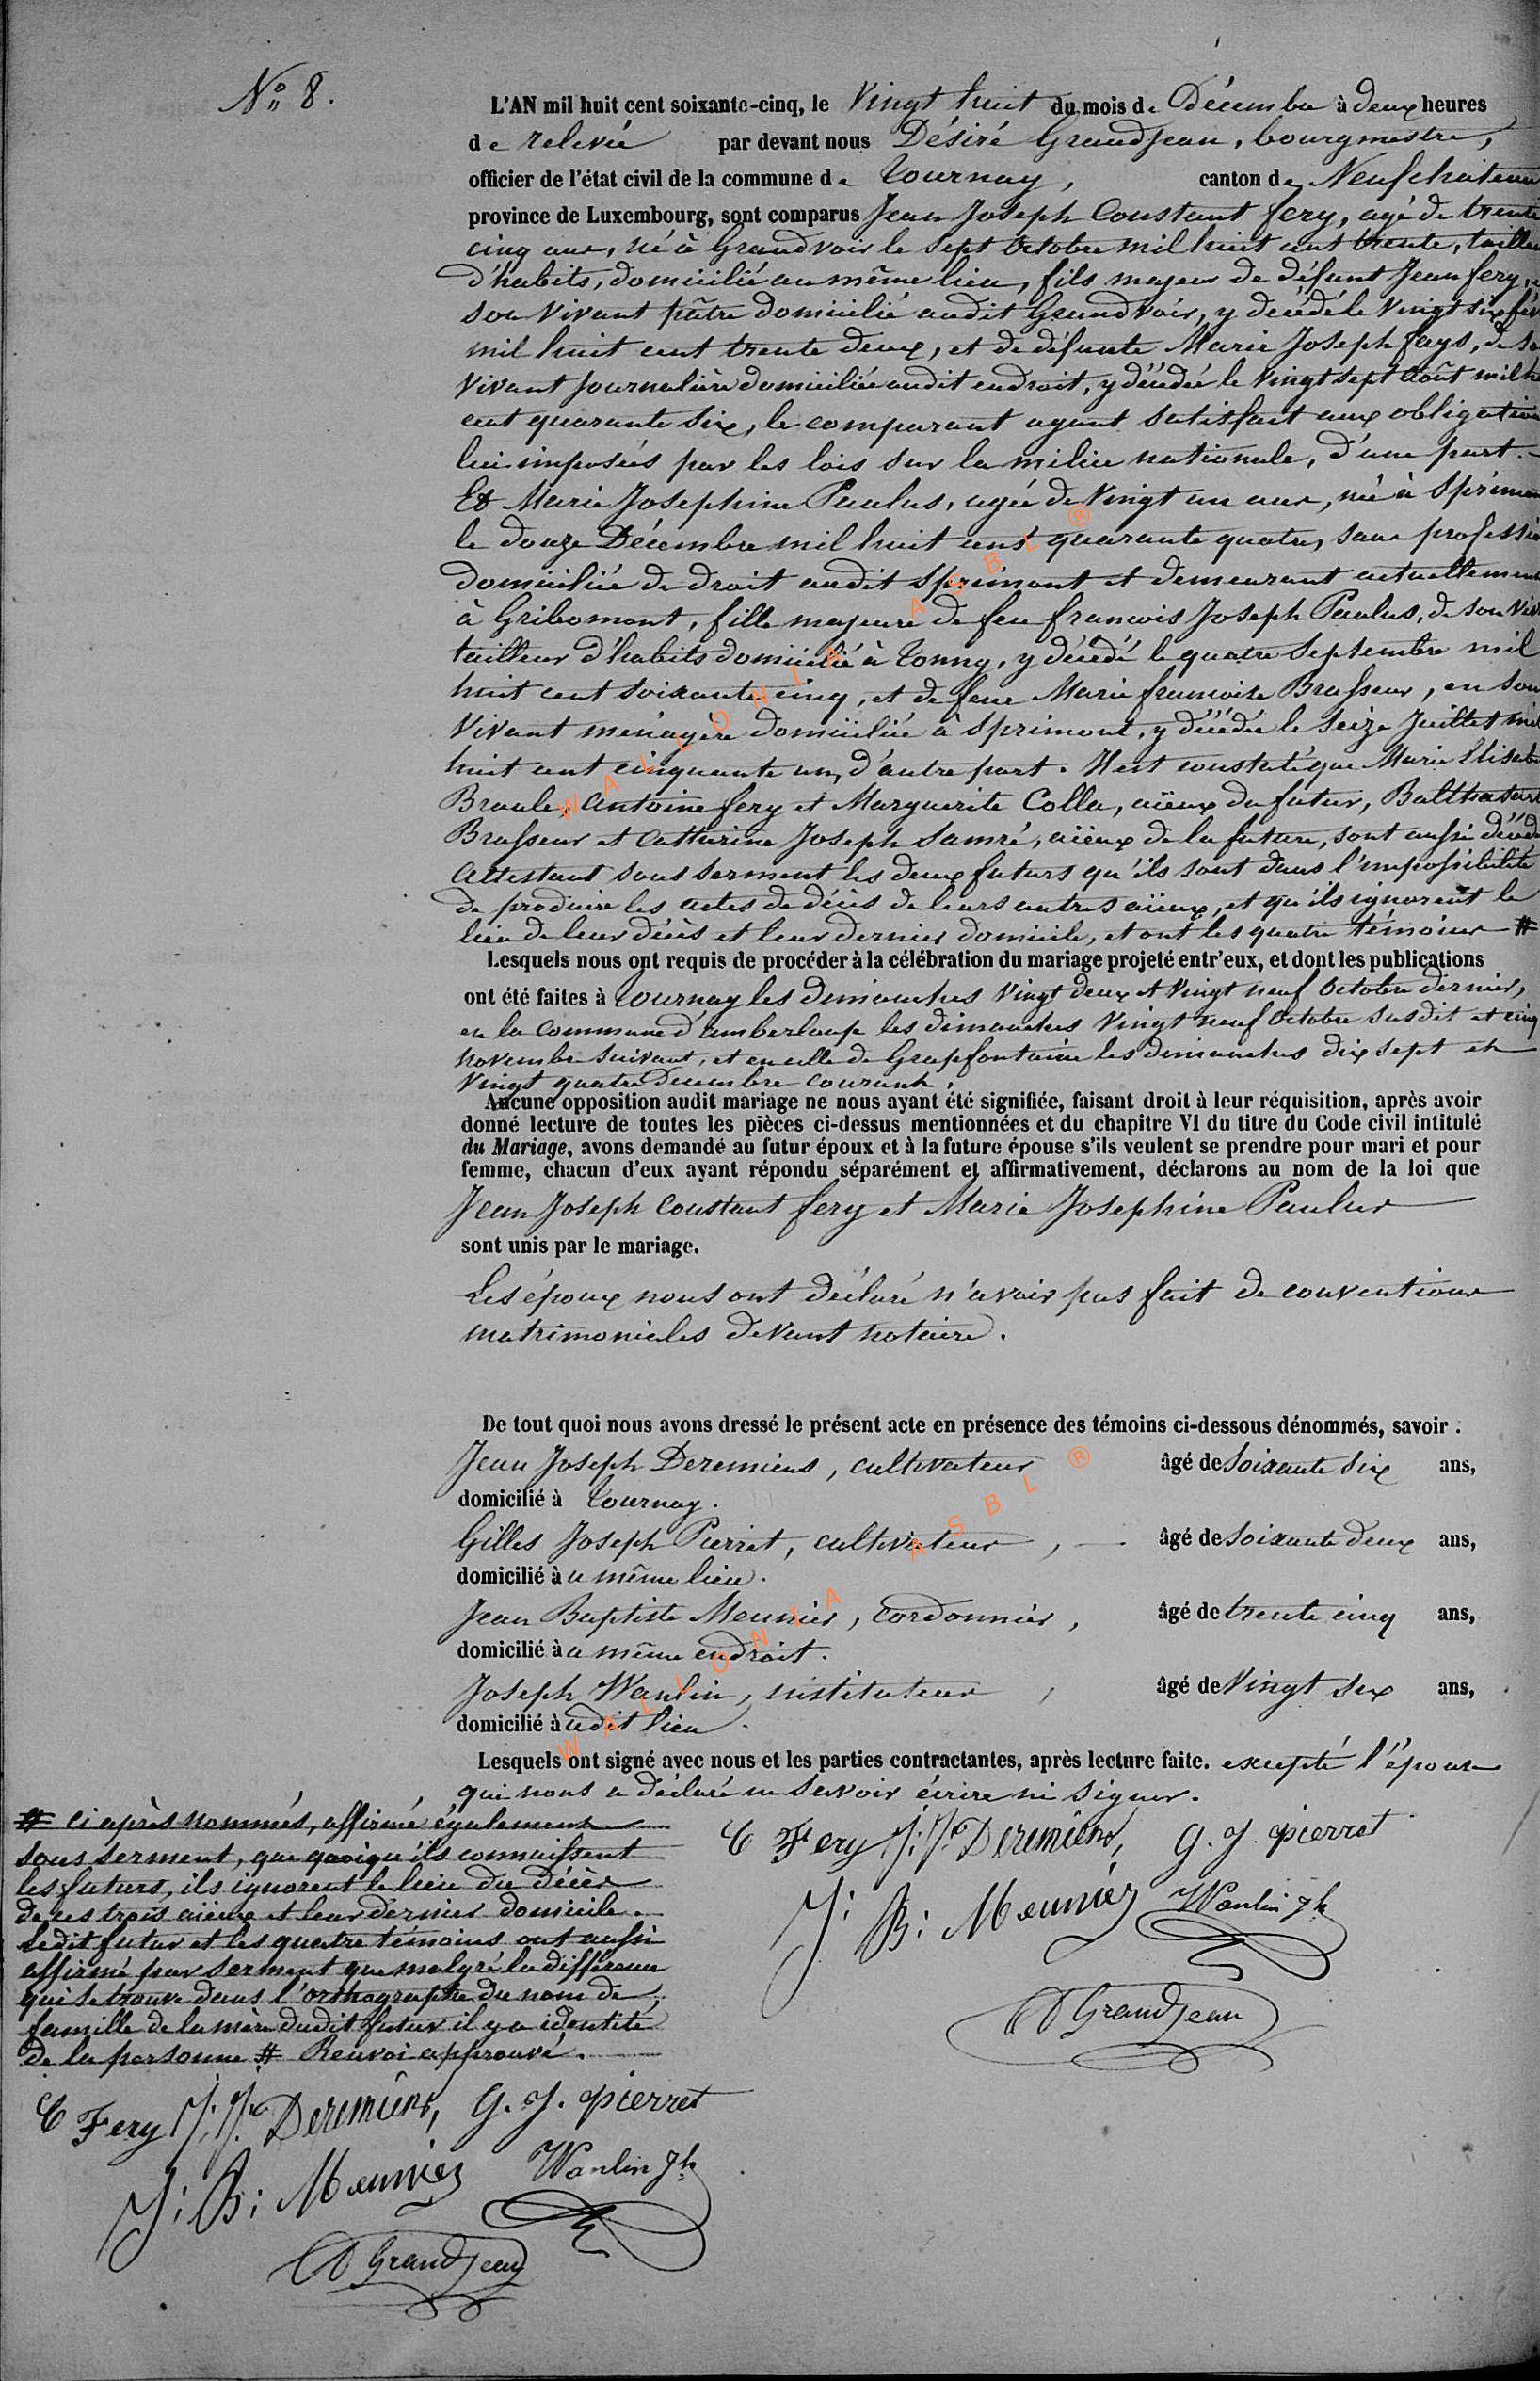 N° 8.
L'AN mil huit cent soixante-cinq, le Vingt huit du mois de Décembre à deux heures
de relevée par devant nous Désiré Grandjean, bourgmestre,
officier de l'état civil de la commune de Tournay, canton de Neufchateau
province de Luxembourg, sont comparus Jean Joseph Constant fery, agé de trente
cinq ans, né à Grandvoir le sept Octobre mil huit cent trente, tailleur
d'habits, domicilié au même lieu, fils majeur de défunt Jean fery,
son vivant pâtre domicilié audit Grandvoir, y décédé le Vingt six
mil huit cent trente deux, et de défunte Marie Joseph fays, de
vivant journalière domiciliée audit endroit, y décédée le Vingt sept Août mil
cent quarante six, le comparant ayant satisfait aux obligations
lui imposées par les lois sur la milice nationale, d'une part.-
Et Marie Josephine Paulus, agée de Vingt un ans, née à Sprimont
le douze Décembre mil huit cent quarante quatre, sans profession
domiciliée de droit audit Sprimont et demeurant actuellement
à Gribomont, fille majeure de feu francois Joseph Paulus, de son
tailleur d'habits domicilié à Tonny, y décédé le quatre Septembre mil
huit cent soixante cinq, et de feue Marie francoise Brasseur, en son
Vivant ménagère domiciliée à Sprimont, y décédée le seize Juillet mil
huit cent cinquante un, d'autre part. Il est constaté que Marie Elisabeth
Braule, Antoine fery et Marguerite Colla, aïeux du futur, Balthasard
Brasseur et Catherine Joseph Samré, aïeux de la future, sont aussi décédés
Attestant sous serment les deux futurs qu'ils sont dans l'impossibilité
de produire les actes de décès de leurs autres aïeux, et qu'ils ignorent le
lieu de leur décès et leur dernier domicile, et ont les quatre témoins #
Lesquels nous ont requis de procéder à la célébration du mariage projeté entr'eux, et dont les publications
ont été faites à Tournay les dimanches Vingt deux et Vingt neuf Octobre dernier,
en la commune d'amberloup les dimanches Vingt neuf Octobre susdit et cinq
novembre suivant, et en celle de Grapfontaine les dimanches dix sept et
Vingt quatre Decembre courant.
Aucune opposition audit mariage ne nous ayant été signifiée, faisant droit à leur réquisition, après avoir
donné lecture de toutes les pièces ci-dessus mentionnées et du chapitre VI du titre du Code civil intitulé
du Mariage, avons demandé au futur époux et à la future épouse s'ils veulent se prendre pour mari et pour
femme, chacun d'eux ayant répondu séparément et affirmativement, déclarons au nom de la loi que
Jean Joseph Constant fery et Marie Josephine Paulus
sont unis par le mariage.
Les époux nous ont déclaré n'avoir pas fait de conventions
matrimoniales devant notaire.
De tout quoi nous avons dressé le présent acte en présence des témoins ci-dessous dénommés, savoir :
Jean Joseph Deremiens, cultivateur âgé de Soixante six ans,
domicilié à Tournay.
Gilles Joseph Pierret, cultivateur, - âgé de Soixante deux ans,
domicilié à ce même lieu.
Jean Baptiste Meunier, Cordonnier, âgé de trente cinq ans,
domicilié à ce même endroit.
Joseph Wanlin, instituteur, âgé de Vingt six ans,
domicilié à cedit lieu.
Lesquels ont signé avec nous et les parties contractantes, après lecture faite. excepté l'épouse
qui nous a déclaré ne savoir écrire ni signer.
C Fery J: Jh Deremiens, G. J. pierret
J: B: Meunier Wanlin Jh
D Grandjean
# ci après nommés, affirmé également
sous serment, que quoiqu'ils connaissent
les futurs, ils ignorent le lieu du décès
de ces trois aïeux et leur dernier domicile.
Ledit futur et les quatre témoins ont aussi
affirmé par serment que malgré la différence
qui se trouve dans l'orthographe du nom de
famille de la mère dudit futur il y a identité
de la personne # Renvoi approuvé.
C Fery J: Jh Deremiens, G. J. pierret
J: B: Meunier Wanlin Jh
D Grandjean
WALLONIA ASBL ®
WALLONIA ASBL ®